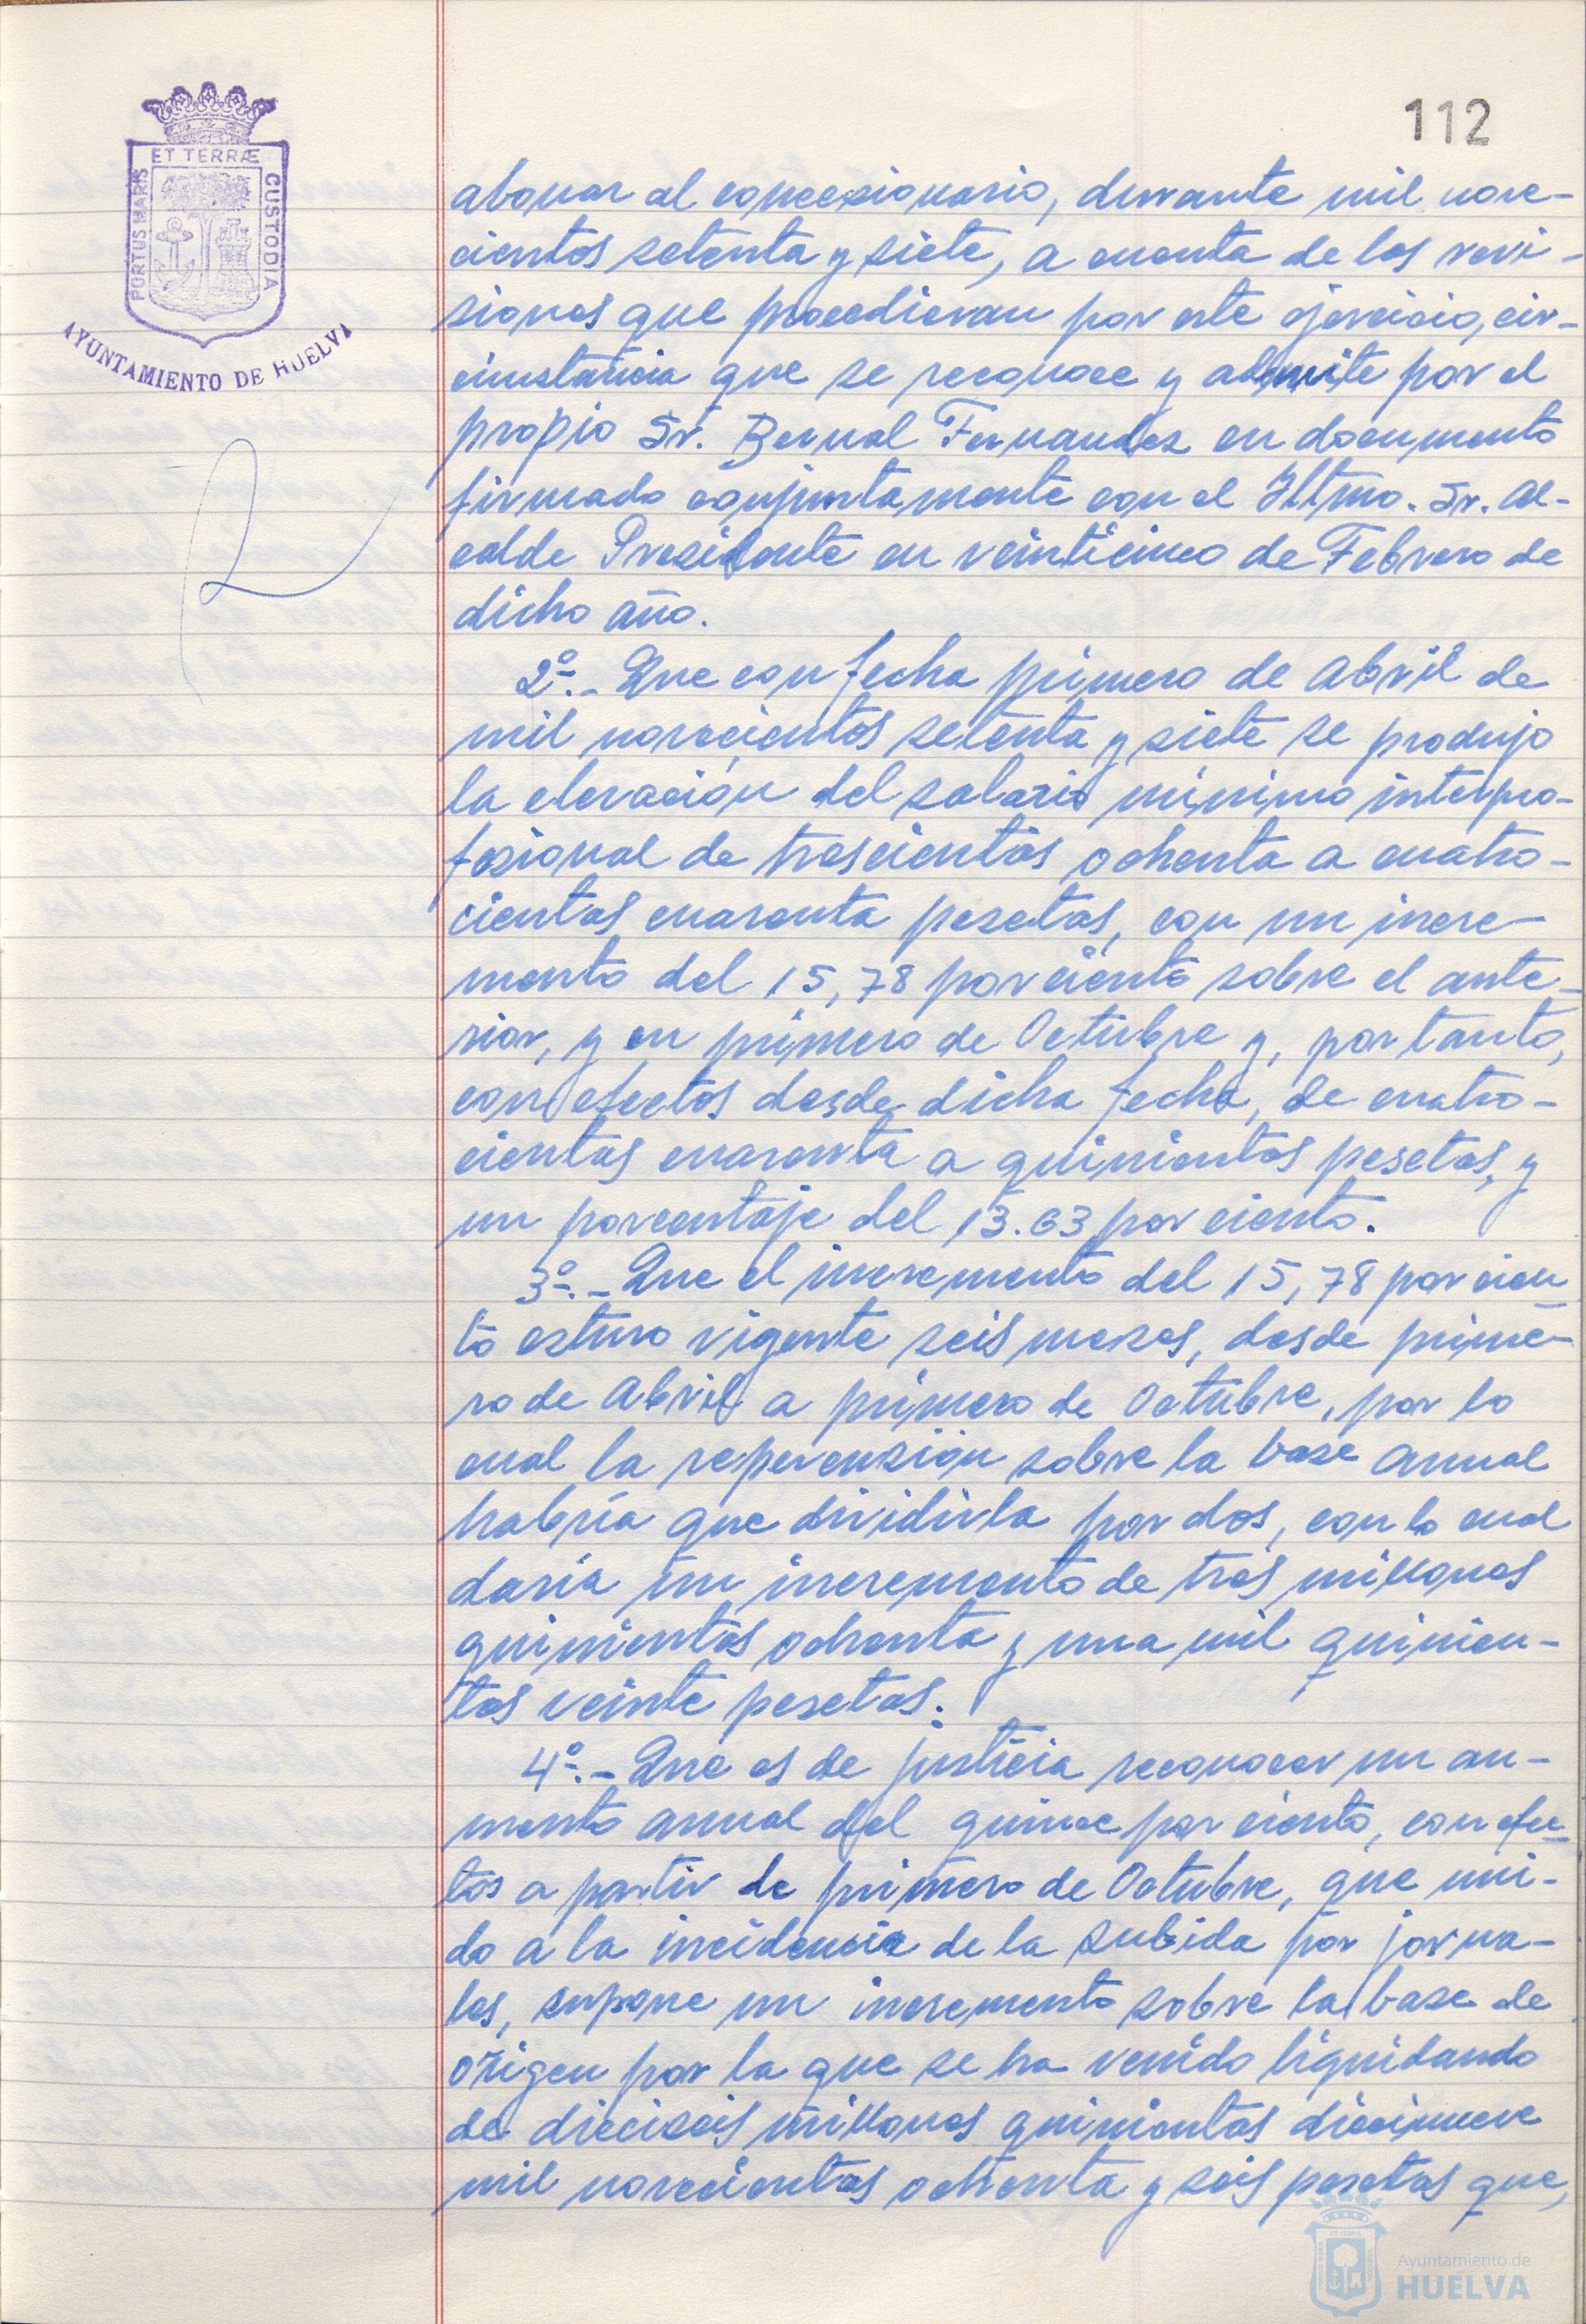 112
ET TERRÆ
PORTUS MARIS
CUSTODIA
AYUNTAMIENTO DE HUELVA
abonar al concesionario, durante mil nove-
cientos setenta y siete, a cuenta de las revi-
siones que procedieran por este ejercicio, cir-
cinstancia que se reconoce y admite por el
propio Sr. Bernal Fernandez en documento
firmado conjuntamente con el Iltmo. Sr. Al-
calde Presidente en veinticinco de Febrero de
dicho año.
2º.- Que con fecha primero de Abril de
mil novecientos setenta y siete se produjo
la elevación del salario mínimo interpro-
fesional de trescientas ochenta a cuatro-
cientas cuarenta pesetas, con un incre-
mento del 15,78 por ciento sobre el ante-
rior, y en primero de Octubre y, por tanto,
con efectos desde dicha fecha, de cuatro-
cientas cuarenta a quinientas pesetas, y
un porcentaje del 13.63 por ciento.
3º.- Que el incremento del 15,78 por cien
to estuvo vigente seis meses, desde prime-
ro de Abril a primero de Octubre, por lo
cual la repercusión sobre la base anual
habría que dividirla por dos, con lo cual
daría un incremento de tres millones
quinientas ochenta y una mil quinien-
tas veinte pesetas.
4º.- Que es de justicia reconocer un au-
mento anual del quince por ciento, con efec-
tos a partir de primero de Octubre, que uni-
do a la incidencia de la subida por jorna-
les, supone un incremento sobre la base de
origen por la que se ha venido liquidando
de dieciseis millones quinientas diecinueve
mil novecientas ochenta y seis pesetas que,
Ayuntamiento de
HUELVA